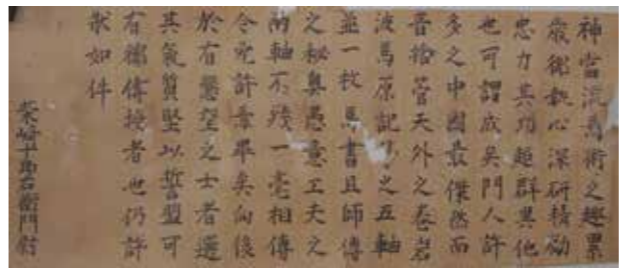 神當流馬術之趣累
歳術執心深研精勵
忠力其功超群異他
也可謂成矣門人許
多之中国最傑然而
吾於管天外之巻岩
波馬原記 之五軸
並一枚馬書且師傳
之秘奥愚意工夫之
両軸不残一毫相傳
令免許畢矣向後
於有懇望之士者選
其気質堅以誓盟可
有穂傳授者也仍許
状如件
柴崎十郎右衛門尉